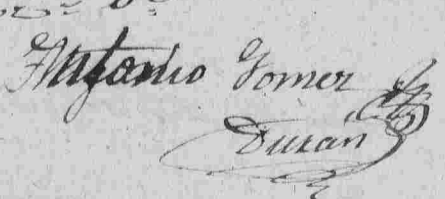 Antonio Gomez
Durán